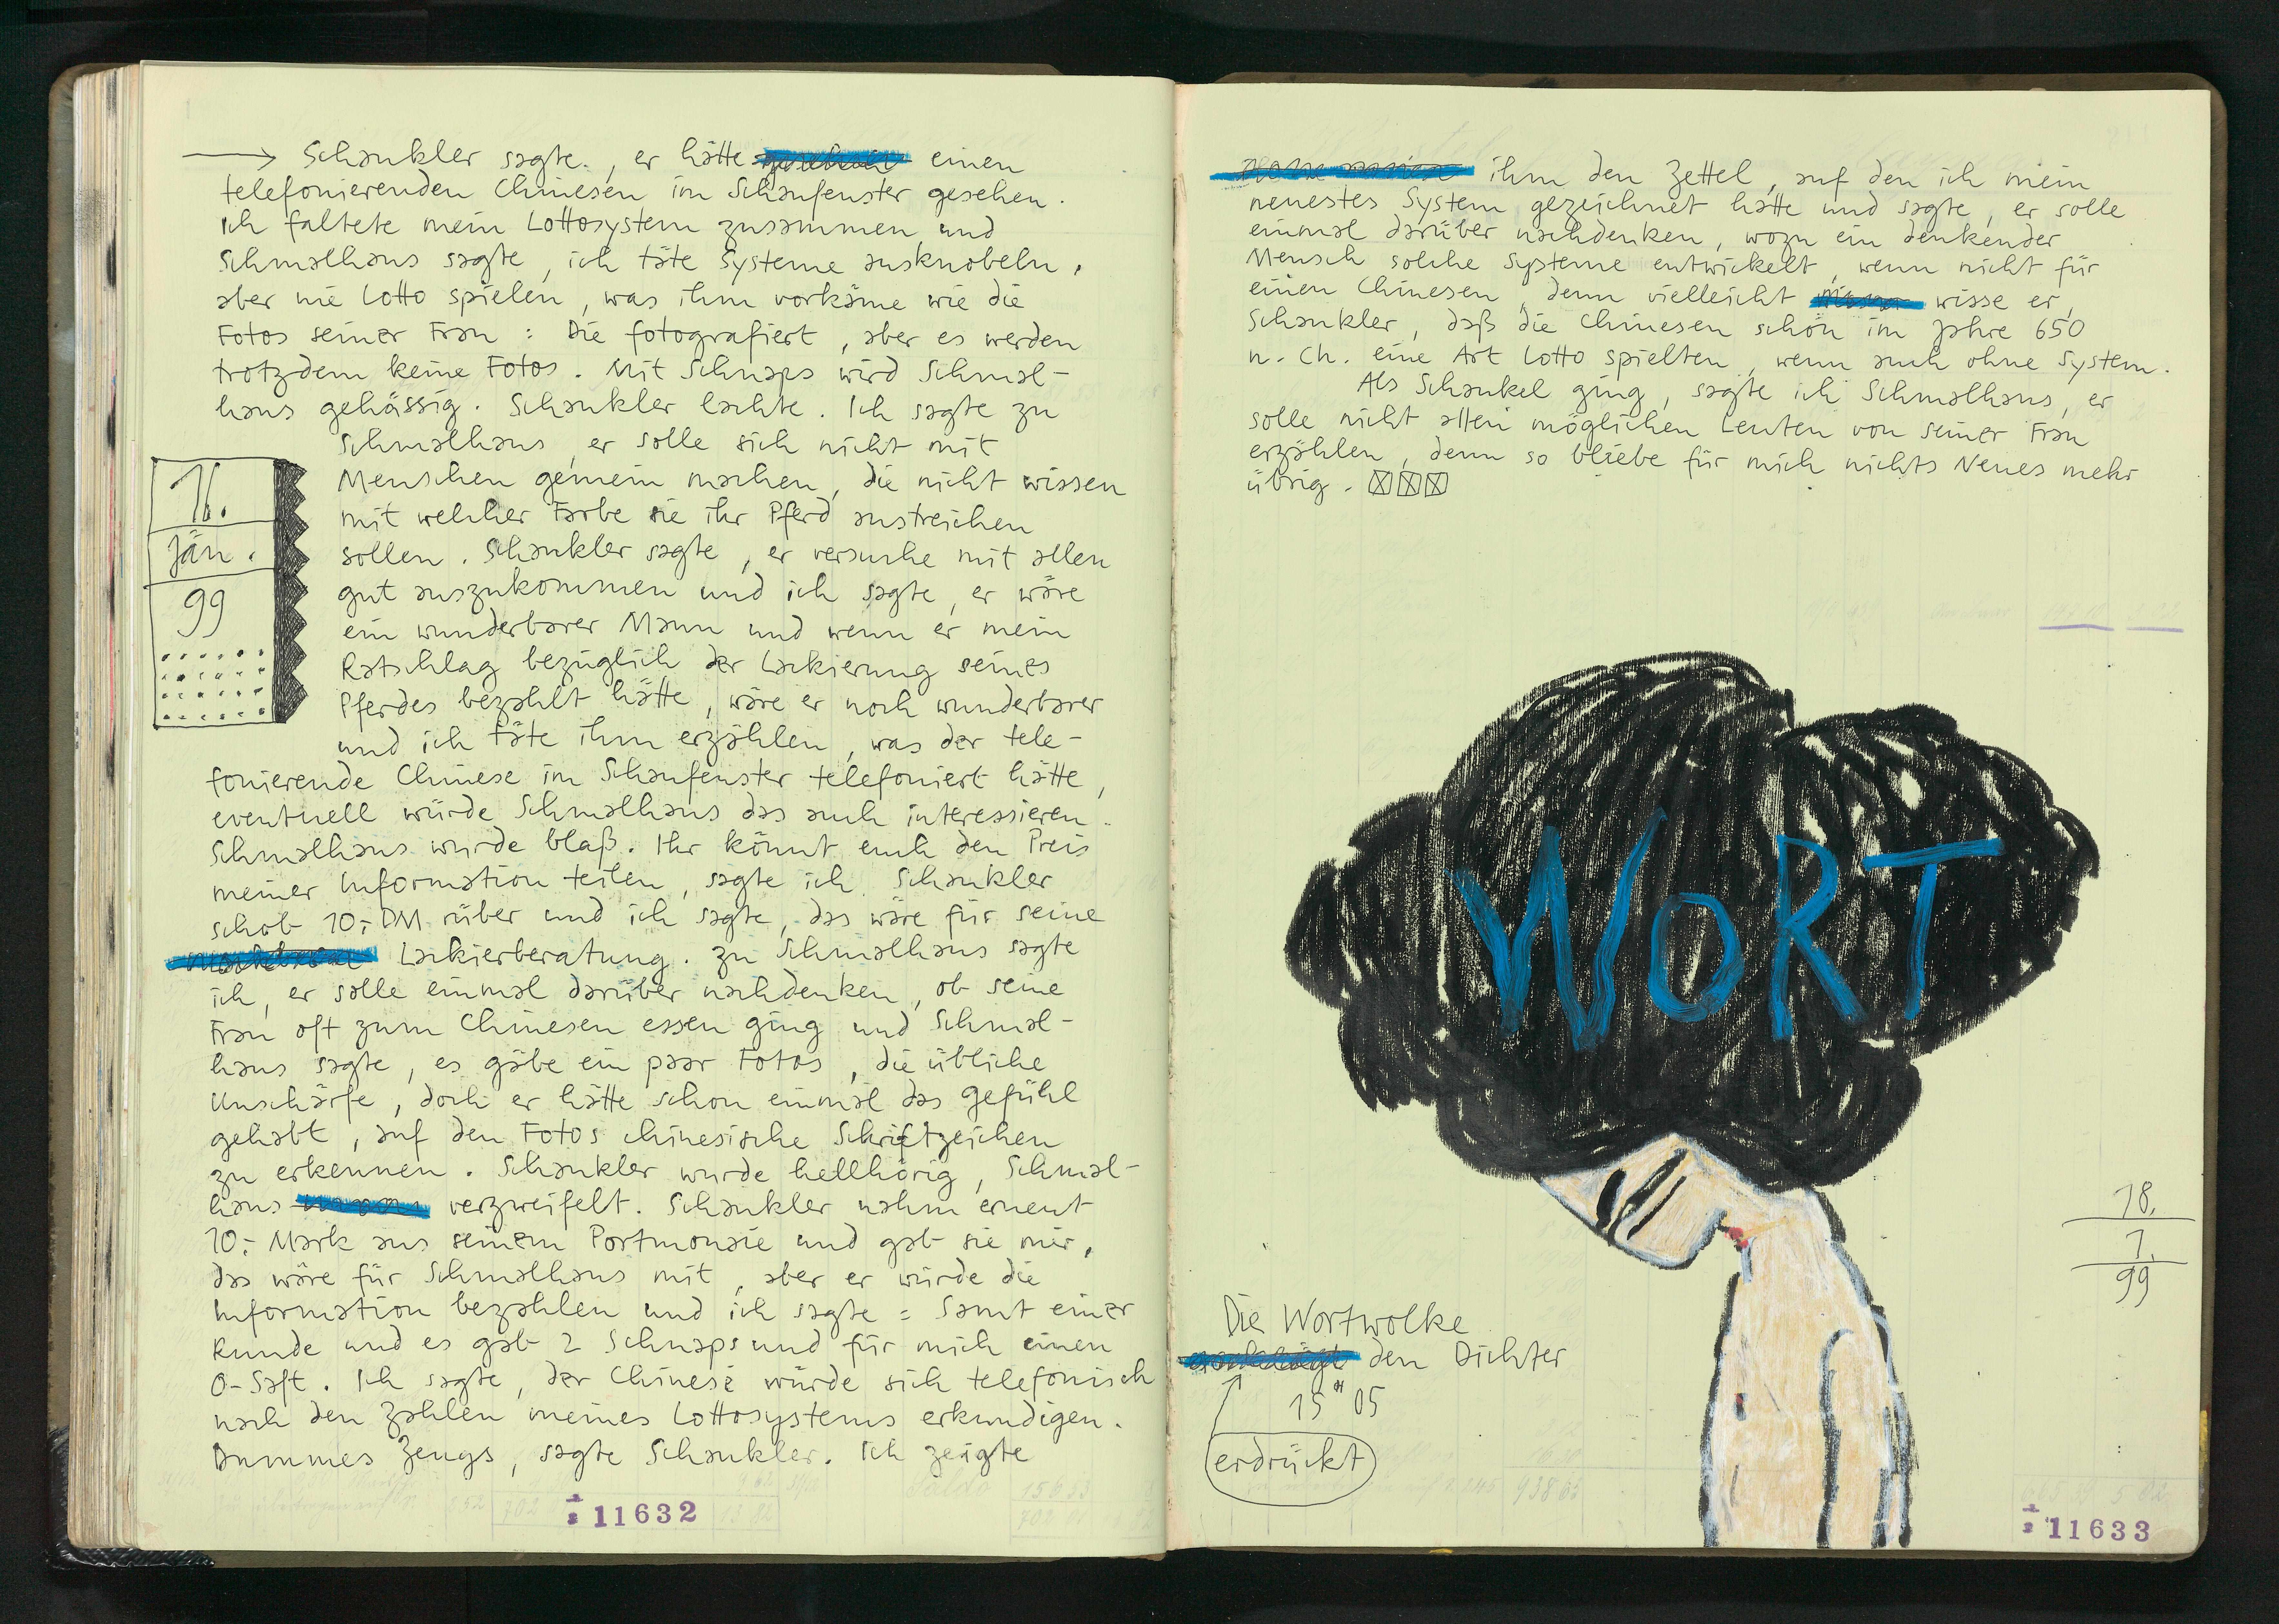 Schankler sagte, er hätte einen
telefonierenden Chinesen im Schaufenster gesehen.
Ich faltete mein Lottosystem zusammen und
Schmalhaus sagte, ich täte Systeme ausknobeln,
aber nie Lotto spielen, was ihm vorkäme wie die
Fotos seiner Frau : Die fotografiert, aber es werden
trotzdem keine Fotos. Mit Schnaps wird Schmal-
haus gehässig. Schankler lachte. Ich sagte zu
Schmalhaus, er solle sich nicht mit
Menschen gemein machen, die nicht wissen
mit welcher Farbe sie ihr Pferd anstreichen
sollen. Schankler sagte, er versuche mit allen
gut auszukommen und ich sagte, er wäre
ein wunderbarer Mann und wenn er mein
Ratschlag bezüglich der Lackierung seines
Pferdes bezahlt hätte, wäre er noch wunderbarer
und ich täte ihm erzählen, was der tele-
fonierende Chinese im Schaufenster telefoniert hätte,
eventuell würde Schmalhaus das auch interessieren.
Schmalhaus wurde blaß. Ihr könnt euch den Preis
meiner Information teilen, sagte ich. Schankler
schob 10,- DM rüber und ich sagte, das wäre für seine
Lackierberatung. Zu Schmalhaus sagte
ich, er solle einmal darüber nachdenken, ob seine
Frau oft zum Chinesen essen ging und Schmal-
haus sagte, es gäbe ein paar Fotos, die übliche
Unschärfe, doch er hätte schon einmal das Gefühl
gehabt, auf den Fotos chinesische Schriftzeichen
zu erkennen. Schankler wurde hellhörig, Schmal-
haus verzweifelt. Schankler nahm erneut
10,- Mark aus seinem Portmonaie und gab sie mir,
das wäre für Schmalhaus mit, aber er würde die
Information bezahlen und ich sagte : Samt einer
Runde und es gab 2 Schnaps und für mich einen
O-Saft. Ich sagte, der Chinese würde sich telefonisch
nach den Zahlen meines Lottosystems erkundigen.
Dummes Zeugs, sagte Schankler. Ich zeigte
Jän.
99
11632
ihm den Zettel, auf den ich mein
neuestes System gezeichnet hätte und sagte, er solle
einmal darüber nachdenken, wozu ein denkender
Mensch solche Systeme entwickelt, wenn nicht für
einen Chinesen, denn vielleicht wisse er,
Schankler, daß die Chinesen schon im Jahre 650
n. Ch. eine Art Lotto spielten, wenn auch ohne System.
Als Schankel ging, sagte ich Schmalhaus, er
solle nicht allen möglichen Leuten von seiner Frau
erzählen, denn so bliebe für mich nichts Neues mehr
übrig.
WORT
18.
1.
99
Die Wortwolke
den Dichter
15 05
erdrückt
11633